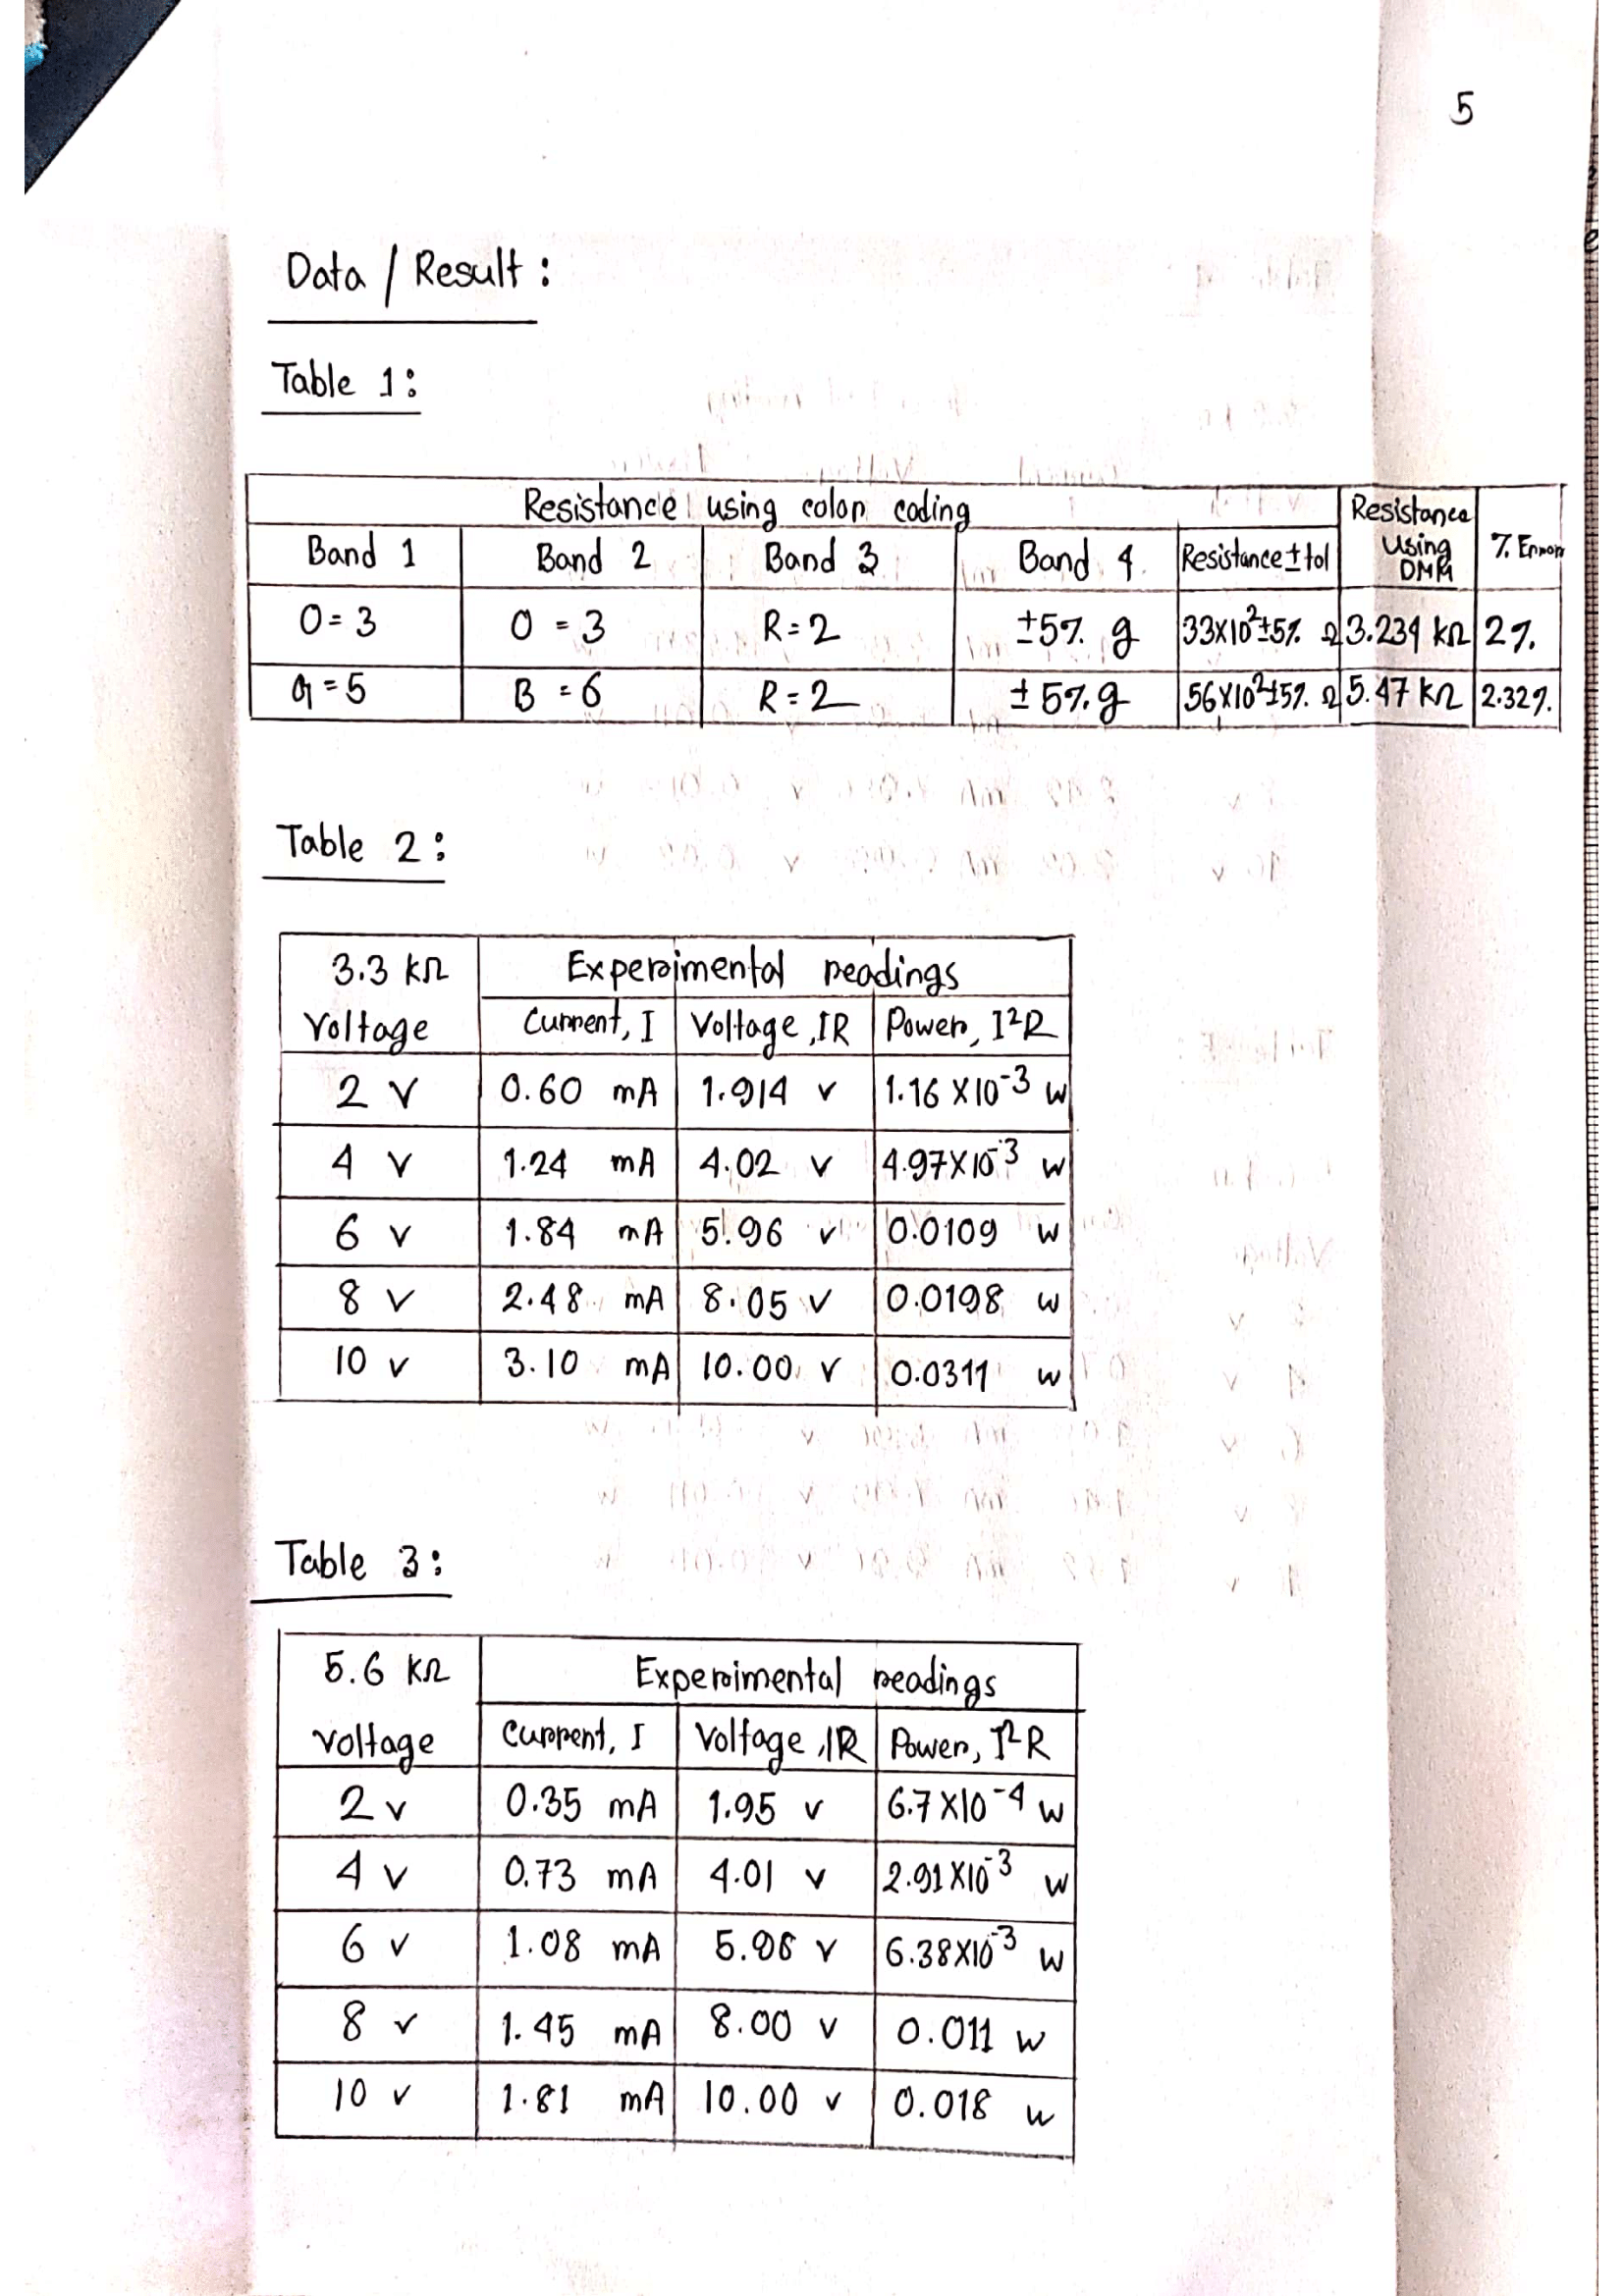 5
Data / Result :
Table 1:
Resistance using color coding
Resistance Using DMM
% Error
Band 1 Band 2 Band 3 Band 4 Resistance ± tol
O = 3 O = 3 R = 2 ±5% g 33×10²±5% Ω 3.234 kΩ 2%
G = 5 B = 6 R = 2 ±5% g 56×10²±5% Ω 5.47 kΩ 2.32%
Table 2:
3.3 kΩ Experimental readings
Voltage Current, I Voltage, IR Power, I²R
2 V 0.60 mA 1.914 v 1.16 ×10⁻³ w
4 V 1.24 mA 4.02 v 4.97×10⁻³ w
6 v 1.84 mA 5.96 v 0.0109 w
8 V 2.48 mA 8.05 v 0.0198 w
10 v 3.10 mA 10.00 v 0.0311 w
Table 3:
5.6 kΩ Experimental readings
voltage Current, I Voltage, IR Power, I²R
2 v 0.35 mA 1.95 v 6.7×10⁻⁴ w
4 v 0.73 mA 4.01 v 2.91×10⁻³ w
6 v 1.08 mA v 6.38×10⁻³ w
8 v 1.45 mA 8.00 v 0.011 w
10 v 1.81 mA 10.00 v 0.018 w